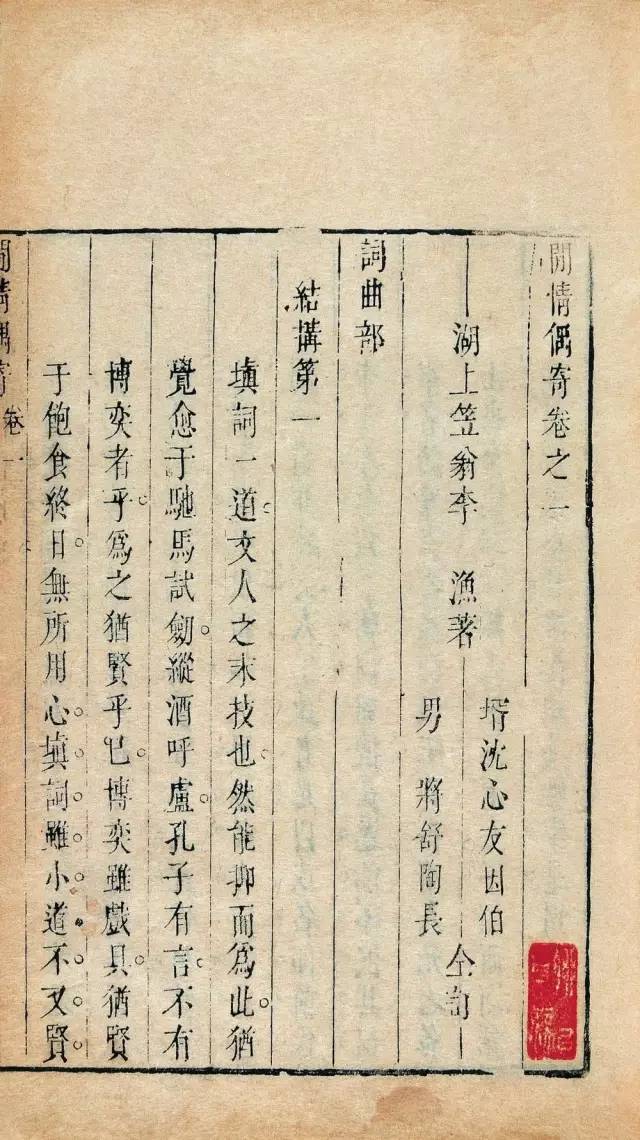 閒情偶寄卷之一
湖上笠翁李　漁著
壻沈心友因伯
男　將舒陶長
仝訂
詞曲部
結搆第一
填詞一道。文人之末技也。然能抑而爲此。猶
覺愈于馳馬試劒。縱酒呼盧。孔子有言。不有
博奕者乎。爲之猶賢乎已。博奕雖戲具。猶賢
于飽食終日。無所用心。填詞雖小道。不又賢
閒情偶寄 卷一